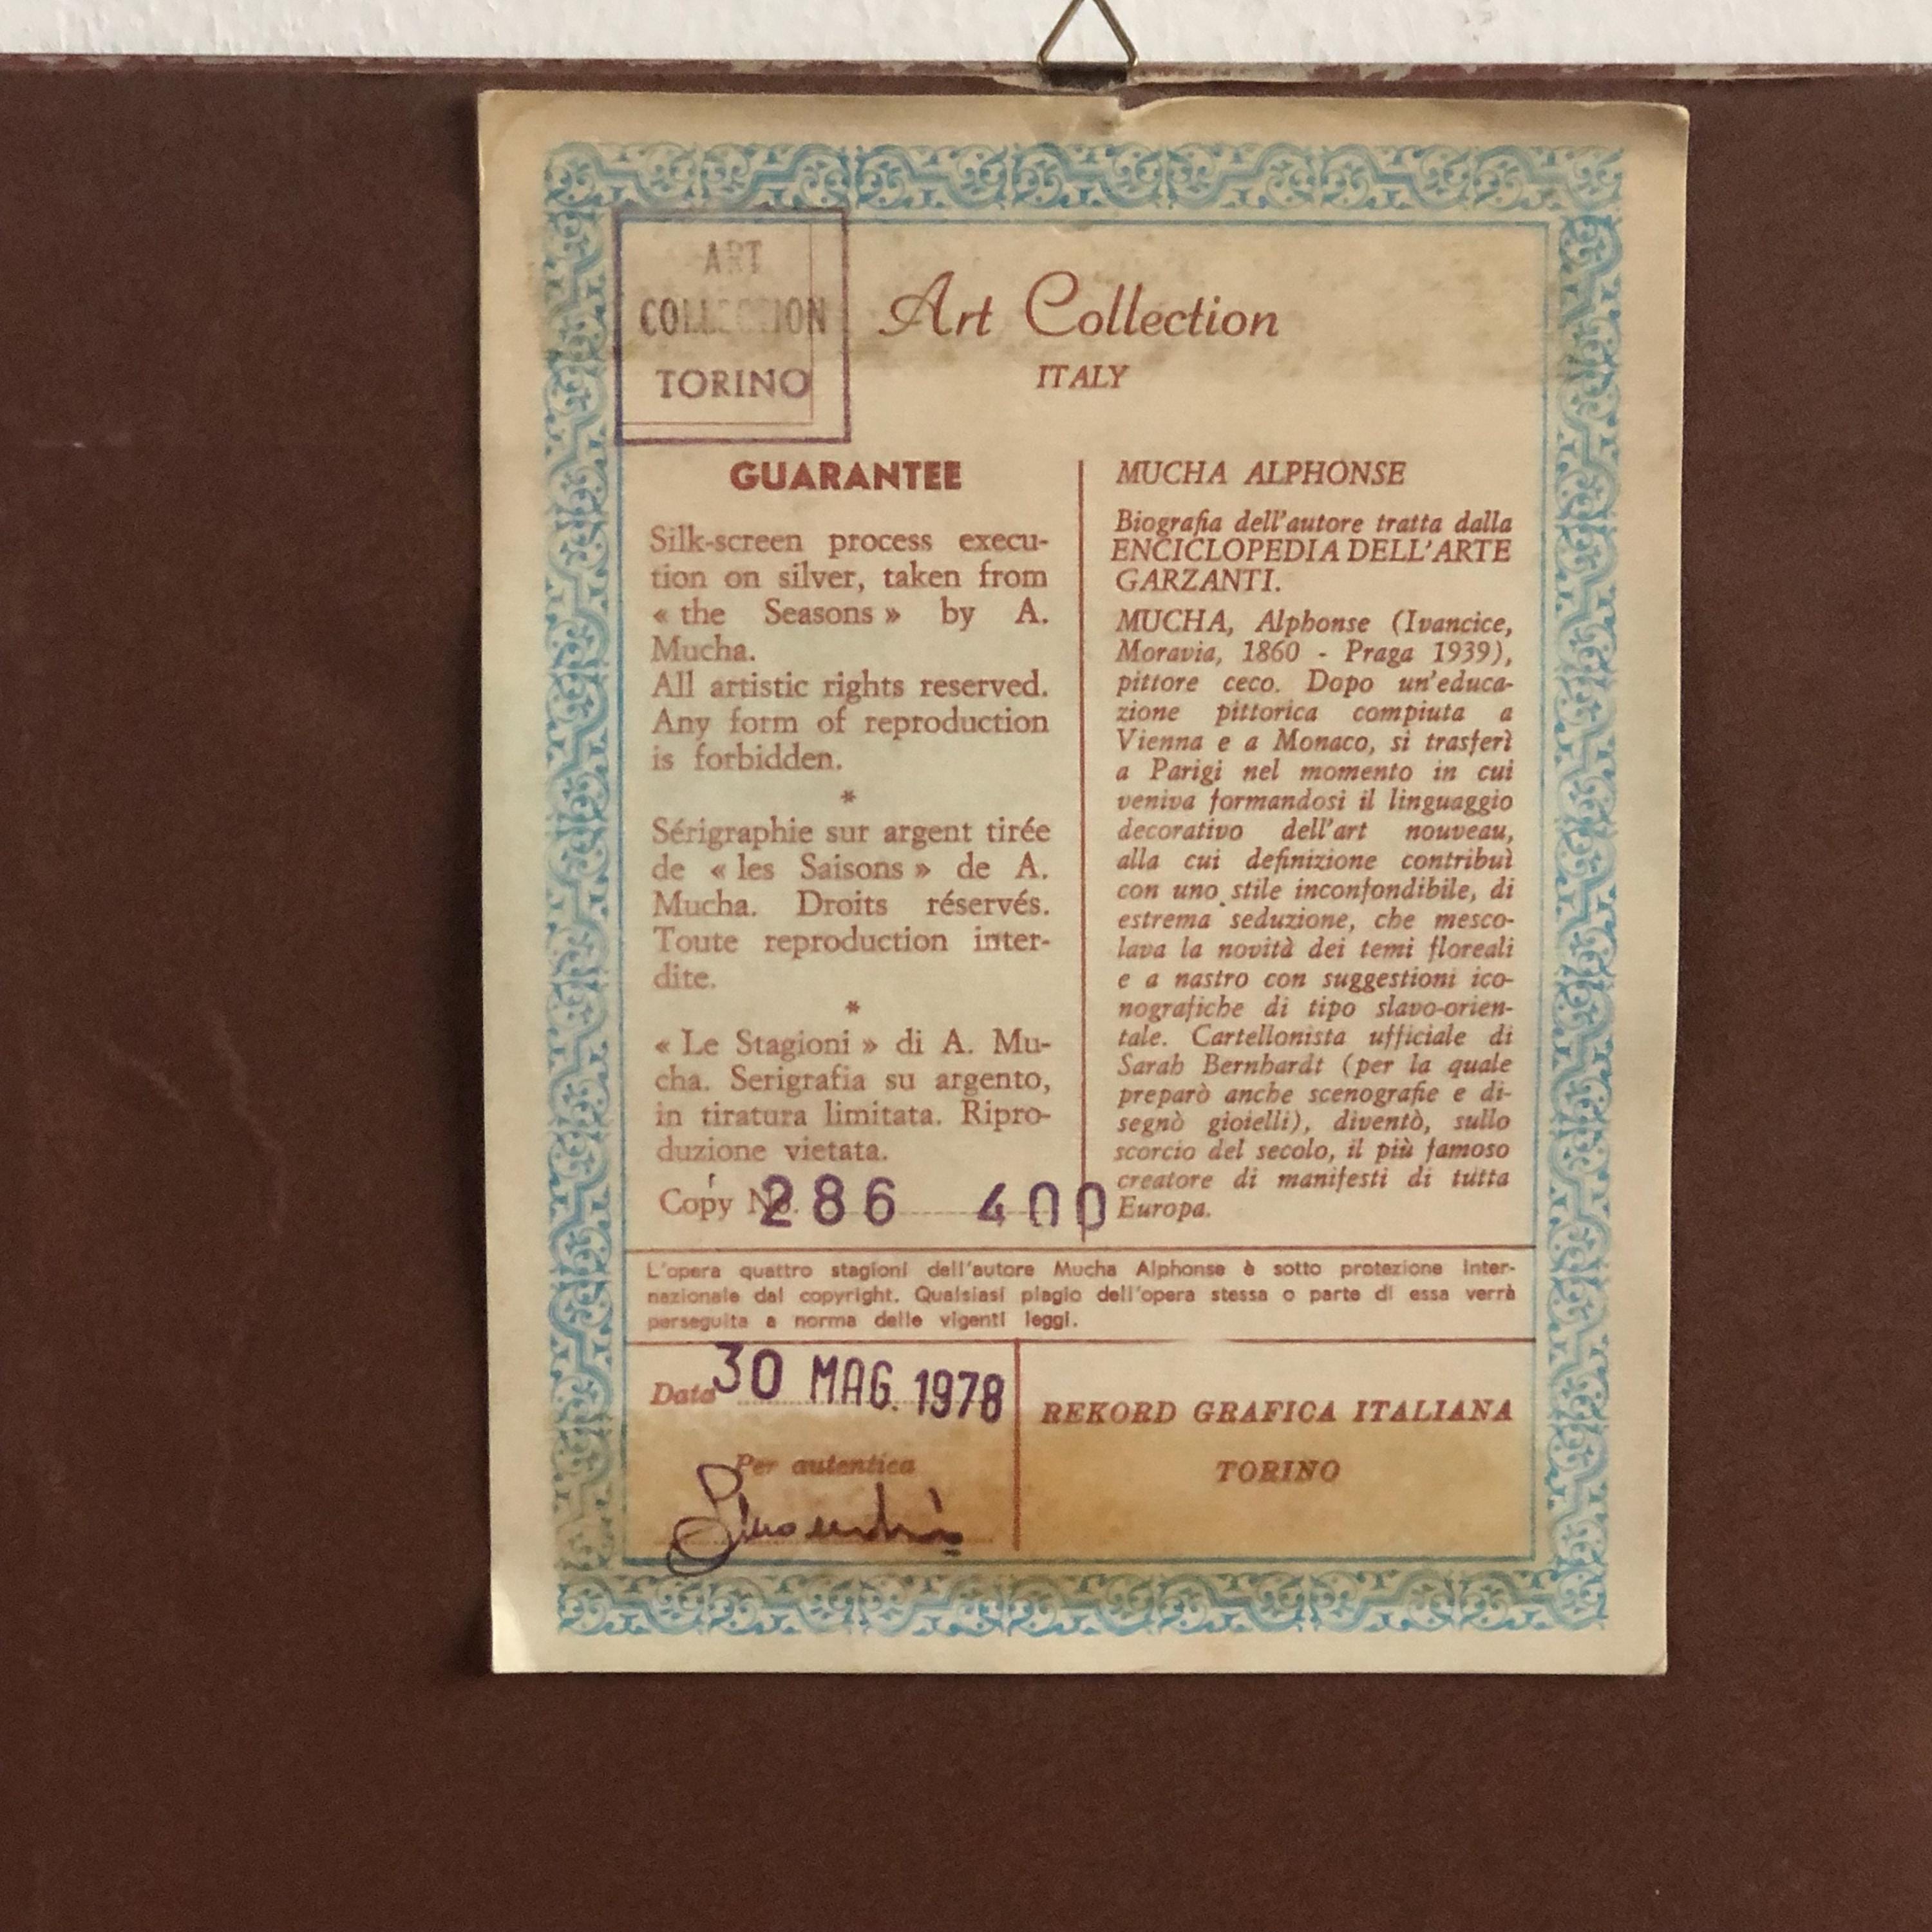 ART
COLLECTION
TORINO
Art Collection
ITALY
GUARANTEE
Silk-screen process execu-
tion on silver, taken from
« the Seasons » by A.
Mucha.
All artistic rights reserved.
Any form of reproduction
is forbidden.
*
Sérigraphie sur argent tirée
de « les Saisons » de A.
Mucha. Droits réservés.
Toute reproduction inter-
dite.
*
« Le Stagioni » di A. Mu-
cha. Serigrafia su argento,
in tiratura limitata. Ripro-
duzione vietata.
Copy No. 286 400
MUCHA ALPHONSE
Biografia dell'autore tratta dalla
ENCICLOPEDIA DELL'ARTE
GARZANTI.
MUCHA, Alphonse (Ivancice,
Moravia, 1860 - Praga 1939),
pittore ceco. Dopo un'educa-
zione pittorica compiuta a
Vienna e a Monaco, si trasferì
a Parigi nel momento in cui
veniva formandosi il linguaggio
decorativo dell'art nouveau,
alla cui definizione contribuì
con uno stile inconfondibile, di
estrema seduzione, che mesco-
lava la novità dei temi floreali
e a nastro con suggestioni ico-
nografiche di tipo slavo-orien-
tale. Cartellonista ufficiale di
Sarah Bernhardt (per la quale
preparò anche scenografie e di-
segnò gioielli), diventò, sullo
scorcio del secolo, il più famoso
creatore di manifesti di tutta
Europa.
L'opera quattro stagioni dell'autore Mucha Alphonse è sotto protezione inter-
nazionale dal copyright. Qualsiasi plagio dell'opera stessa o parte di essa verrà
perseguita a norma delle vigenti leggi.
Data 30 MAG. 1978
Per autentica
REKORD GRAFICA ITALIANA
TORINO